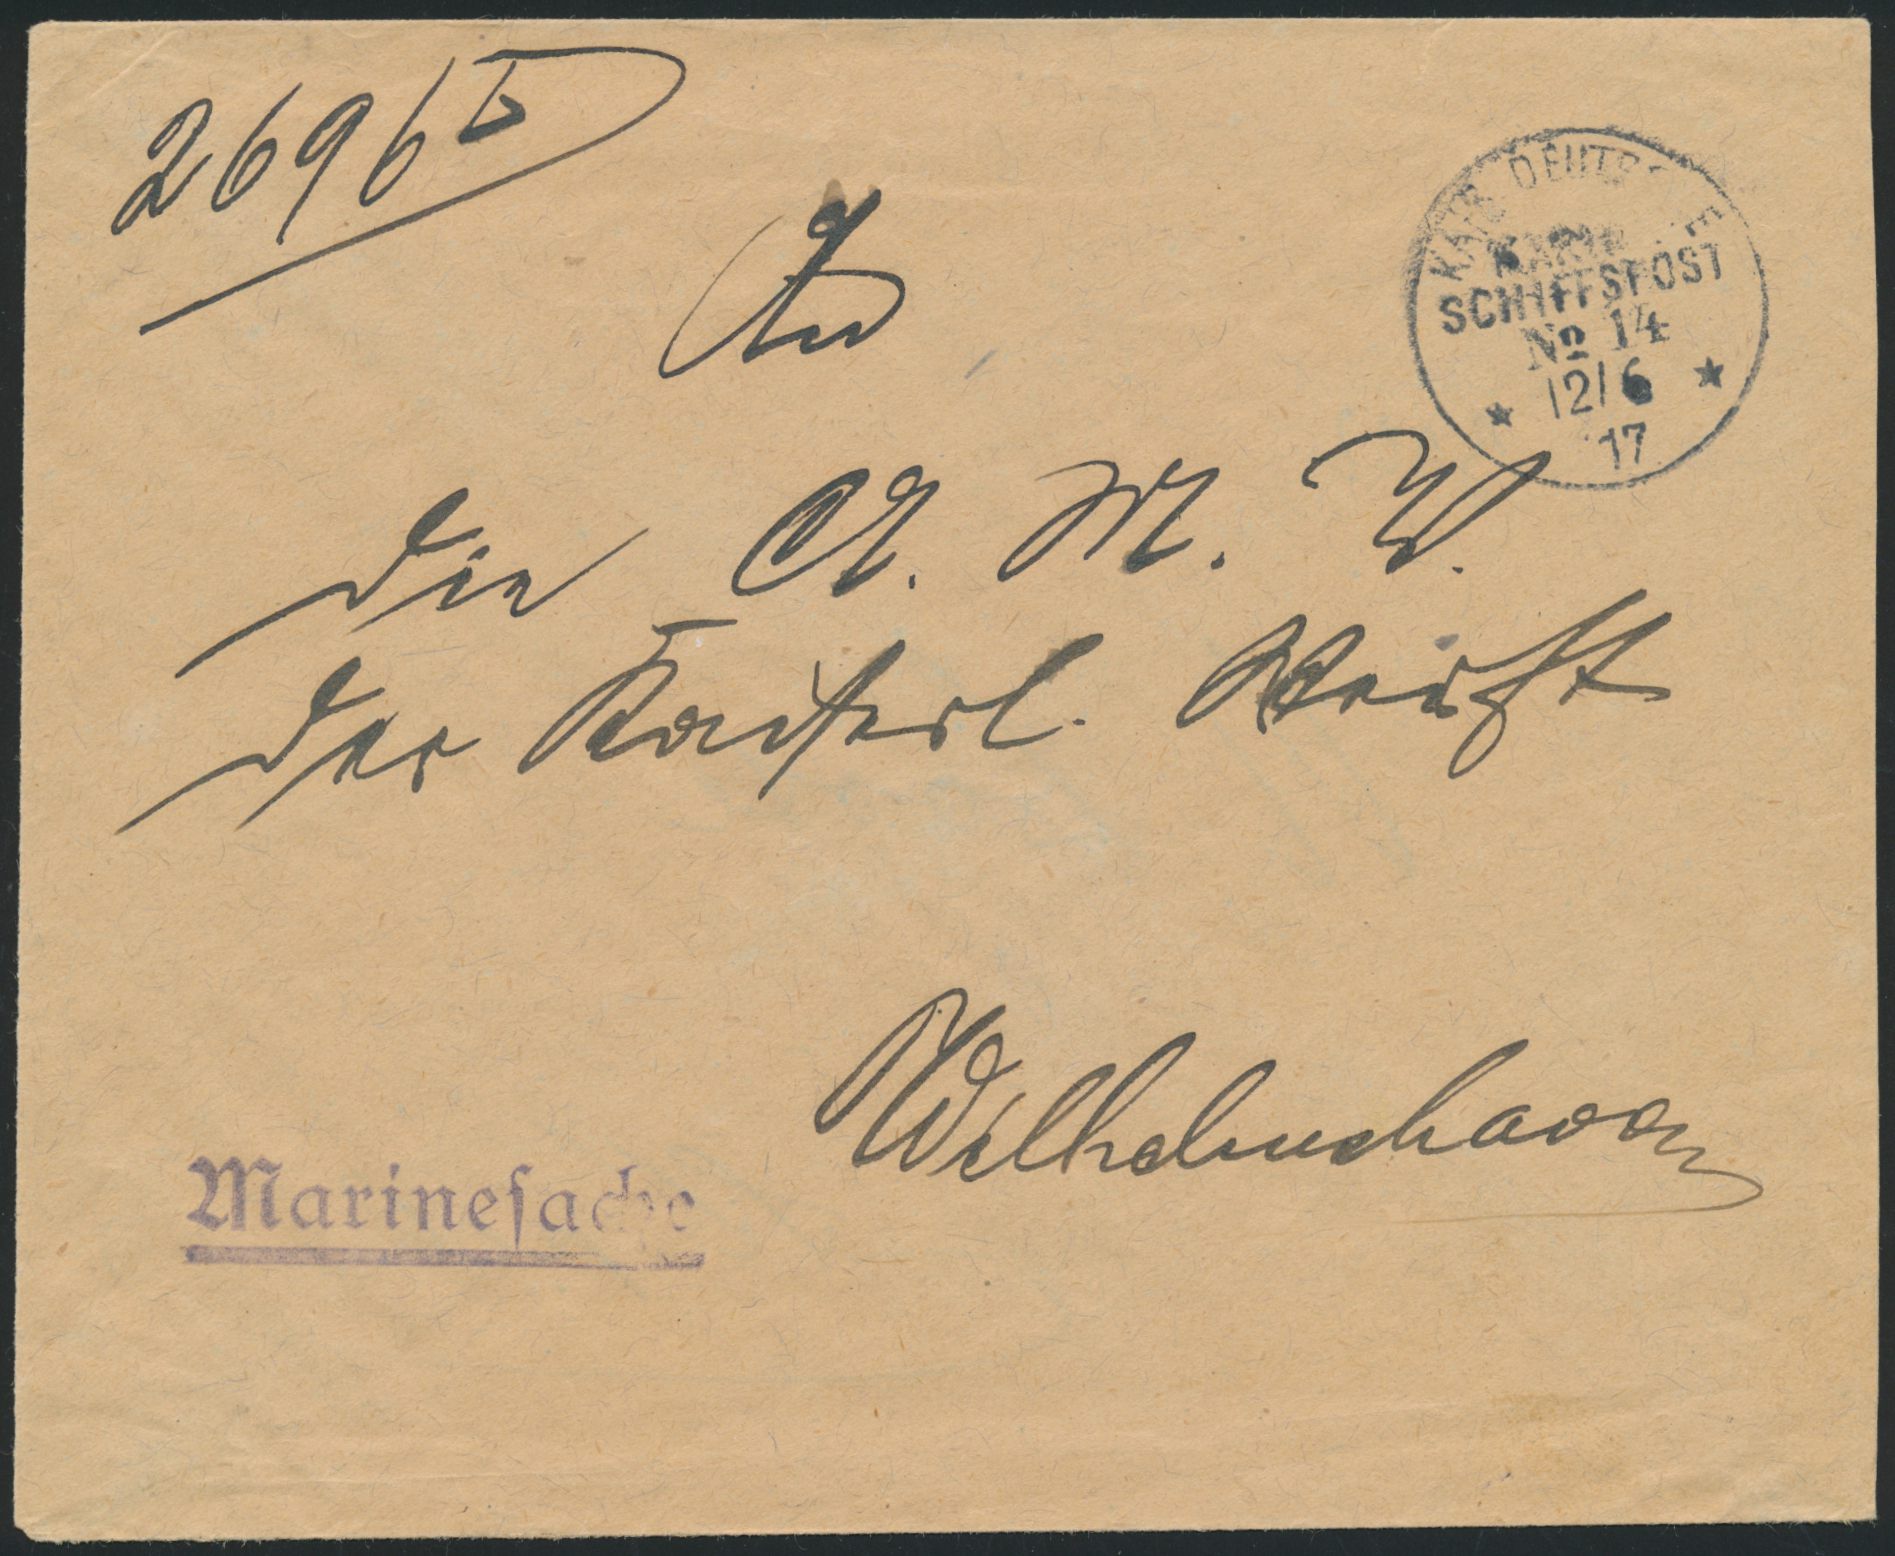 2696
KAIS. DEUTSCHE
MARINE
SCHIFFSPOST
No 14
12/6
17
An
die A. M. W.
der Kaiserl. Werft
Wilhelmshaven
Marinesache